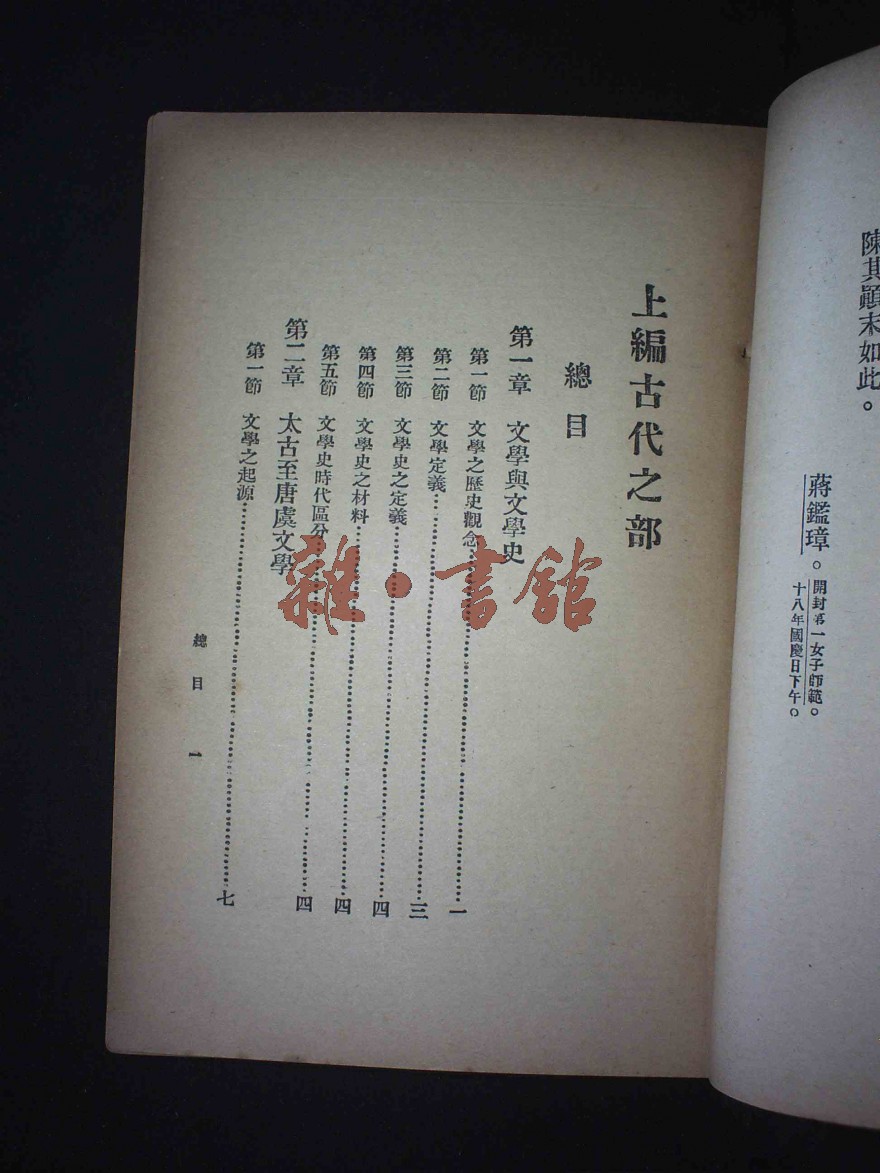 陳其顚末如此。
蔣鑑璋。開封第一女子師範。
十八年國慶日下午。
上編古代之部
總目
第一章 文學與文學史
第一節 文學之歷史觀念……一
第二節 文學定義……三
第三節 文學史之定義……四
第四節 文學史之材料……四
第五節 文學史時代區分……四
第二章 太古至唐虞文學
第一節 文學之起源……七
總目 一
雜·書館